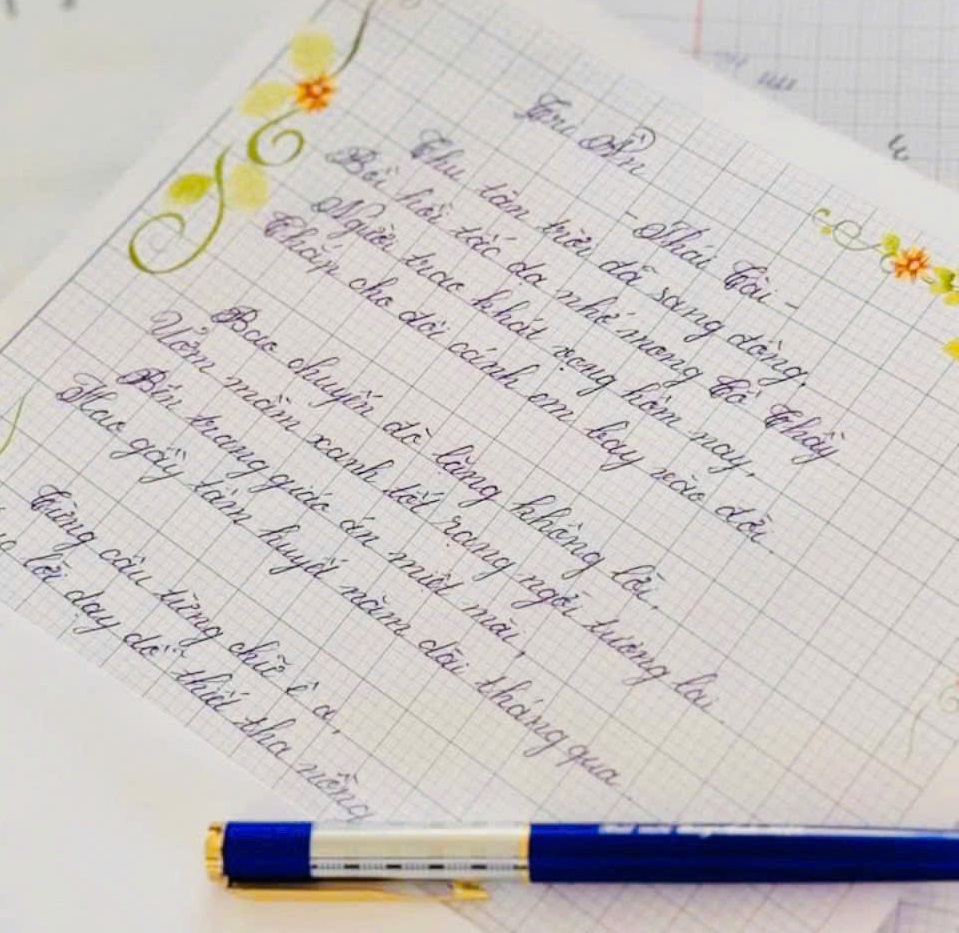 Tri Ân
- Thái Tài -
Thu tàn trời đã sang đông,
Bồi hồi tấc dạ nhớ mong Cô Thầy
Người trao khát vọng hôm nay,
Chắp cho đôi cánh em bay vào đời.
Bao chuyến đò lặng không lời,
Ươm mầm xanh tốt rạng ngời tương lai.
Bên trang giáo án miệt mài,
Hao gầy tâm huyết năm dài tháng qua
Từng câu từng chữ ê a,
lời dạy dỗ thiết tha nồng